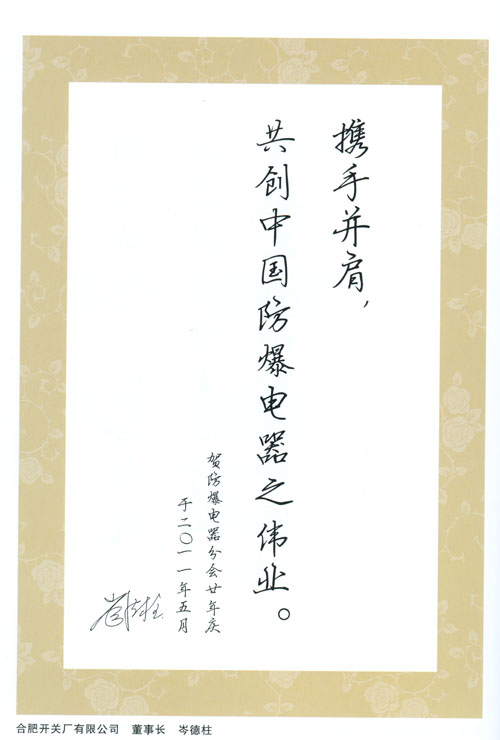 携手并肩，
共创中国防爆电器之伟业。
贺防爆电器分会廿年庆
于二〇一一年五月
岑德柱
合肥开关厂有限公司 董事长 岑德柱